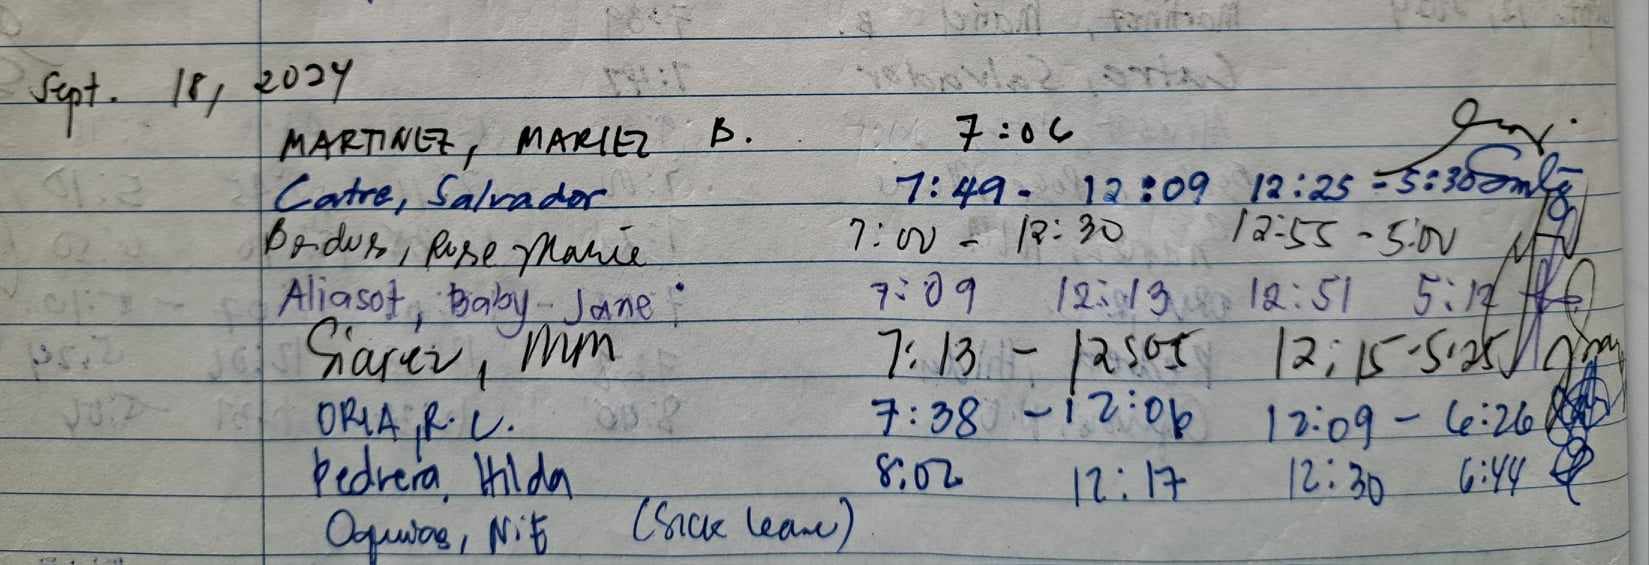 Sept. 18, 2024
MARTINEZ, MARIEZ B. 7:06
Catre, Salvador 7:49 - 12:09 12:25 - 5:30
Rose Marie 7:00 - 12:30 12:55 - 5:00
Aliasot, Baby-Jane 7:09 12:13 12:51 5:17
MM 7:13 - 12:05 12:15-5:25
ORIA, R.C. 7:38 - 12:06 12:09 - 6:26
Pedrera, Hilda 8:02 12:17 12:30 6:44
(Sick leave)